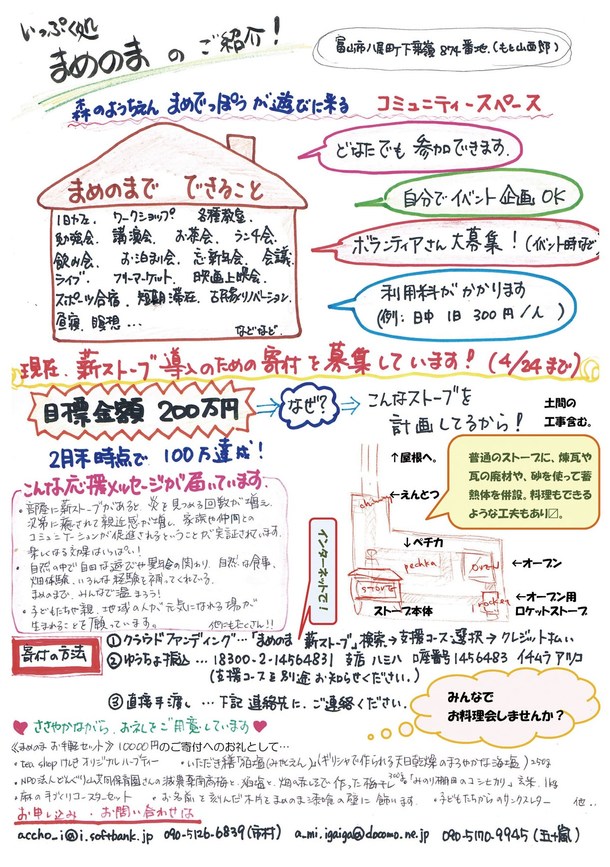 いっぷく処
まめのま の ご紹介!
富山市八尾町下乗嶺 874番地.(もと山西邸)
森のようちえん まめでっぽう が遊びに来る コミュニティースペース
まめのまで できること
1日カフェ. ワークショップ 各種教室.
勉強会. 講演会. お茶会. ランチ会.
飲み会. お泊まり会. 忘・新年会. 会議.
ライブ. フリーマーケット. 映画上映会.
スポーツ合宿. 短期滞在. 古民家リノベーション.
昼寝. 瞑想 ...
などなど.
どなたでも 参加できます.
自分で イベント 企画 OK
ボランティアさん 大募集!(イベント時など)
利用料がかかります
(例: 日中 1日 300円/人 )
現在. 薪ストーブ 導入のための寄付を募集しています! (4/24まで)
目標金額 200万円
なぜ?
こんなストーブを
計画してるから!
土間の
工事含む。
2月末時点で 100万達成!
こんな応援メッセージが届いています.
・部屋に薪ストーブがあると、炎を見つめる回数が増え、
次第に癒されて親近感が増し、家族や仲間との
コミュニケーションが促進されるということが実証されています.
楽しくなる効果はいっぱい!
・自然の中で自由な遊びや異年令の関わり、自然な食事.
畑体験. いろんな経験を補ってくれている.
まめのまで、みんなで温まろう!
・子どもたちや親、地域の人が元気になれる場が
生まれることを願っています. 他にもたくさん!!
↑屋根へ。
chimney
←えんとつ
↓ペチカ
pechka
oven
←オーブン
stove
ストーブ本体
rocket
←オーブン用
ロケットストーブ
普通のストーブに、煉瓦や
瓦の廃材や、砂を使って蓄
熱体を併設。料理もできる
ような工夫もあり〼。
インターネットで!
寄付の方法
①クラウドファンディング…「まめのま 薪ストーブ」検索→支援コース選択→クレジット払い
②ゆうちょ振込 … 18300-2-14564831 支店 ハチミハ 口座番号 1456483 イチムラ アツコ
(支援コースを別途お知らせください.)
③直接手渡し … 下記 連絡先に. ご連絡ください.
みんなで
お料理会しませんか?
ささやかながら. お礼をご用意しています
《まめのま お手軽セット》 10000円のご寄付へのお礼として…
・tea shop けき オリジナルハーブティー ・いただき繕「狛塩(みかえん)」(ギリシャで作られる天日乾燥のまろやかな海塩) 250g
・NPO法人どんぐり山共同保育園さんの減農薬南高梅と、狛塩と、畑の赤しそで作った梅干し 300g ・「みのり棚田のコシヒカリ」玄米. 1kg
・麻の手づくりコースターセット ・お名前を刻んだ木片をまめのま漆喰の壁に飾ります. ・子どもたちからのサンクスレター 他..
お申し込み・お問い合わせは
accho_i@i.softbank.jp 090-5126-6839(市村) a_mi.igaiga@docomo.ne.jp 090-5170-9945(五十嵐)